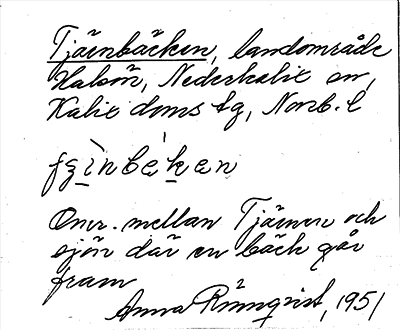 Tjärnbäcken, landområde
Halsön, Nederkalix sn,
Kalix doms tg, Norrb. l
Omr. mellan Tjärnen och
sjön där en bäck går
fram
Anna Rönnqvist, 1951